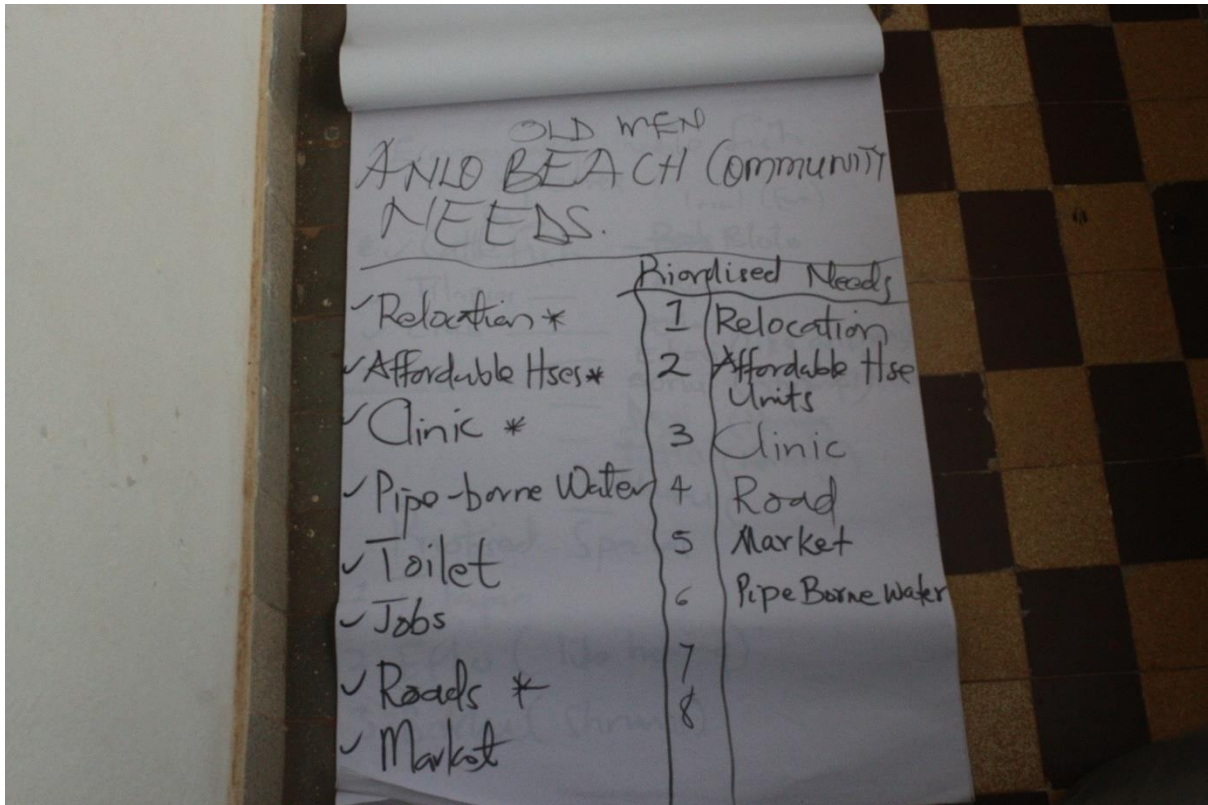 OLD MEN
ANLO BEACH COMMUNITY
NEEDS.
✓ Relocation *
✓ Affordable Hses *
✓ Clinic *
✓ Pipe-borne Water
✓ Toilet
✓ Jobs
✓ Roads *
✓ Market
Needs
1 Relocation
2 Affordable Hse
Units
3 Clinic
4 Road
5 Market
6 Pipe Borne Water
7
8